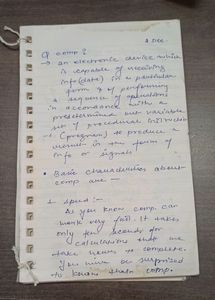 4 Dec
Q comp?
→ an electronic device which
is capable of receiving
info (data) in a particular
form & of performing
a sequence of operations
in accordance with a
predetermined but variable
set of procedural instructions
(program) to produce a
result in the form of
info or signals.
• Basic characteristics about
comp are —
1. speed :-
As you know comp can
work very fast. It takes
only few seconds for
calculations that we
take years to complete.
You will be surprised
to know that comp.